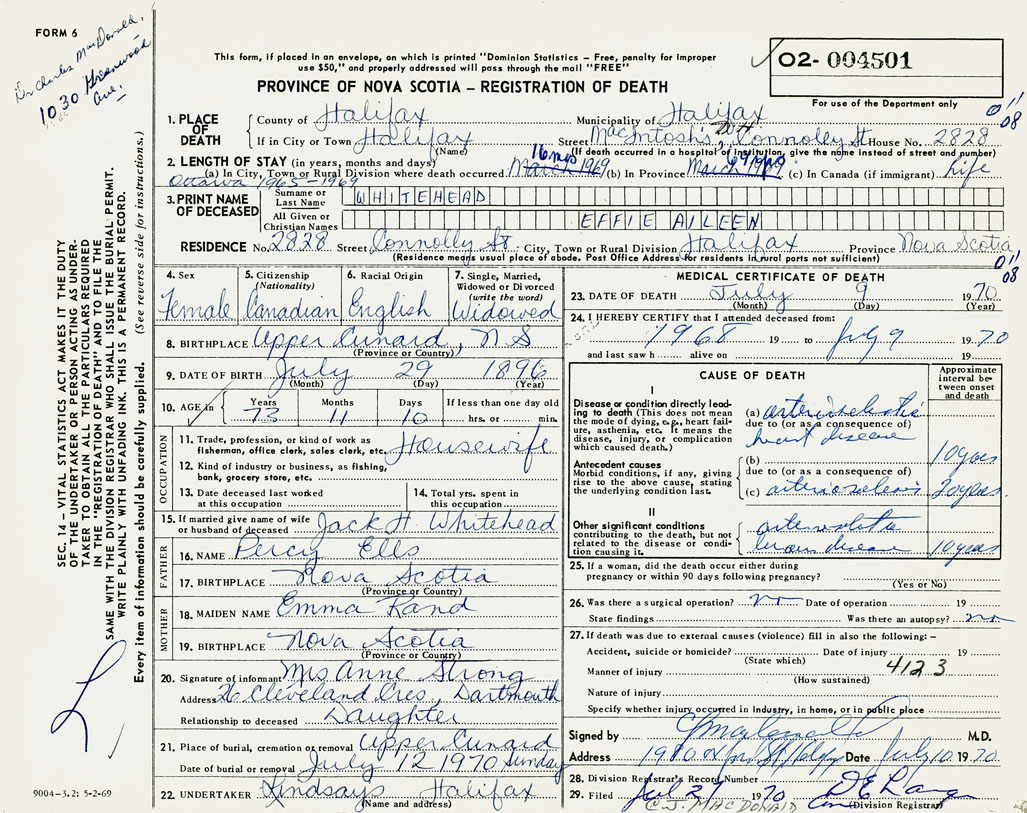 FORM 6
Dr Charles MacDonald,
1030 Greenwood
Ave.
This form, if placed in an envelope, on which is printed "Dominion Statistics – Free, penalty for improper
use $50," and properly addressed will pass through the mail "FREE"
02- 004501
For use of the Department only
PROVINCE OF NOVA SCOTIA – REGISTRATION OF DEATH
011
08
1. PLACE OF DEATH
County of Halifax Municipality of Halifax
If in City or Town Halifax Street MacIntosh's, Connolly St House No. 2828
(Name) (If death occurred in a hospital or institution, give the name instead of street and number)
2. LENGTH OF STAY (in years, months and days)
(a) In City, Town or Rural Division where death occurred 16 mos March 1969 (b) In Province March 1969 (c) In Canada (if immigrant) Life
Ottawa 1965-1969
3. PRINT NAME OF DECEASED
Surname or Last Name WHITEHEAD
All Given or Christian Names EFFIE AILEEN
RESIDENCE No. 2828 Street Connolly St. City, Town or Rural Division Halifax Province Nova Scotia
(Residence means usual place of abode. Post Office Address for residents in rural parts not sufficient)
011
08
4. Sex Female
5. Citizenship (Nationality) Canadian
6. Racial Origin English
7. Single, Married, Widowed or Divorced (write the word) Widowed
8. BIRTHPLACE Upper Cunard, N S
(Province or Country)
9. DATE OF BIRTH July 29 1896
(Month) (Day) (Year)
10. AGE in Years 73 Months 11 Days 10 If less than one day old hrs. or min.
OCCUPATION
11. Trade, profession, or kind of work as fisherman, office clerk, sales clerk, etc. Housewife
12. Kind of industry or business, as fishing, bank, grocery store, etc.
13. Date deceased last worked at this occupation
14. Total yrs. spent in this occupation
15. If married give name of wife or husband of deceased Jack H. Whitehead
FATHER
16. NAME Percy Ells
17. BIRTHPLACE Nova Scotia
(Province or Country)
MOTHER
18. MAIDEN NAME Emma Rand
19. BIRTHPLACE Nova Scotia
(Province or Country)
20. Signature of informant Mrs Anne Strong
Address 26 Cleveland Cres., Dartmouth
Relationship to deceased Daughter
21. Place of burial, cremation or removal Upper Cunard
Date of burial or removal July 12 1970 Sunday
22. UNDERTAKER Lindsays Halifax
(Name and address)
MEDICAL CERTIFICATE OF DEATH
23. DATE OF DEATH July 9 1970
(Month) (Day) (Year)
24. I HEREBY CERTIFY that I attended deceased from:
1968 19 to July 9 1970
and last saw h alive on 19
CAUSE OF DEATH
Approximate interval between onset and death
I
Disease or condition directly leading to death (This does not mean the mode of dying, e.g., heart failure, asthenia, etc. It means the disease, injury, or complication which caused death.)
(a) arteriosclerotic
due to (or as a consequence of)
heart disease
Antecedent causes
Morbid conditions, if any, giving rise to the above cause, stating the underlying condition last.
(b) 10 years
due to (or as a consequence of)
(c) arteriosclerosis 20 years
II
Other significant conditions
contributing to the death, but not related to the disease or condition causing it.
arteriosclerotic
brain disease 10 years
25. If a woman, did the death occur either during pregnancy or within 90 days following pregnancy?
(Yes or No)
26. Was there a surgical operation? no Date of operation 19
State findings Was there an autopsy? no
27. If death was due to external causes (violence) fill in also the following: –
Accident, suicide or homicide? Date of injury 19
(State which)
Manner of injury 4123
(How sustained)
Nature of injury
Specify whether injury occurred in Industry, in home, or in public place
Signed by M.D.
Address 1980 Oxford St Hfx Date July 10 1970
28. Division Registrar's Record Number
29. Filed Jul 27 1970 D E Lang
C. J. MACDONALD (Division Registrar)
SEC. 14 – VITAL STATISTICS ACT MAKES IT THE DUTY
OF THE UNDERTAKER OR PERSON ACTING AS UNDER-
TAKER TO OBTAIN ALL THE PARTICULARS REQUIRED
IN THE "REGISTRATION OF DEATH" AND TO FILE THE
SAME WITH THE DIVISION REGISTRAR WHO SHALL ISSUE THE BURIAL PERMIT.
WRITE PLAINLY WITH UNFADING INK. THIS IS A PERMANENT RECORD.
Every item of information should be carefully supplied. (See reverse side for instructions.)
9004-3.2: 5-2-69